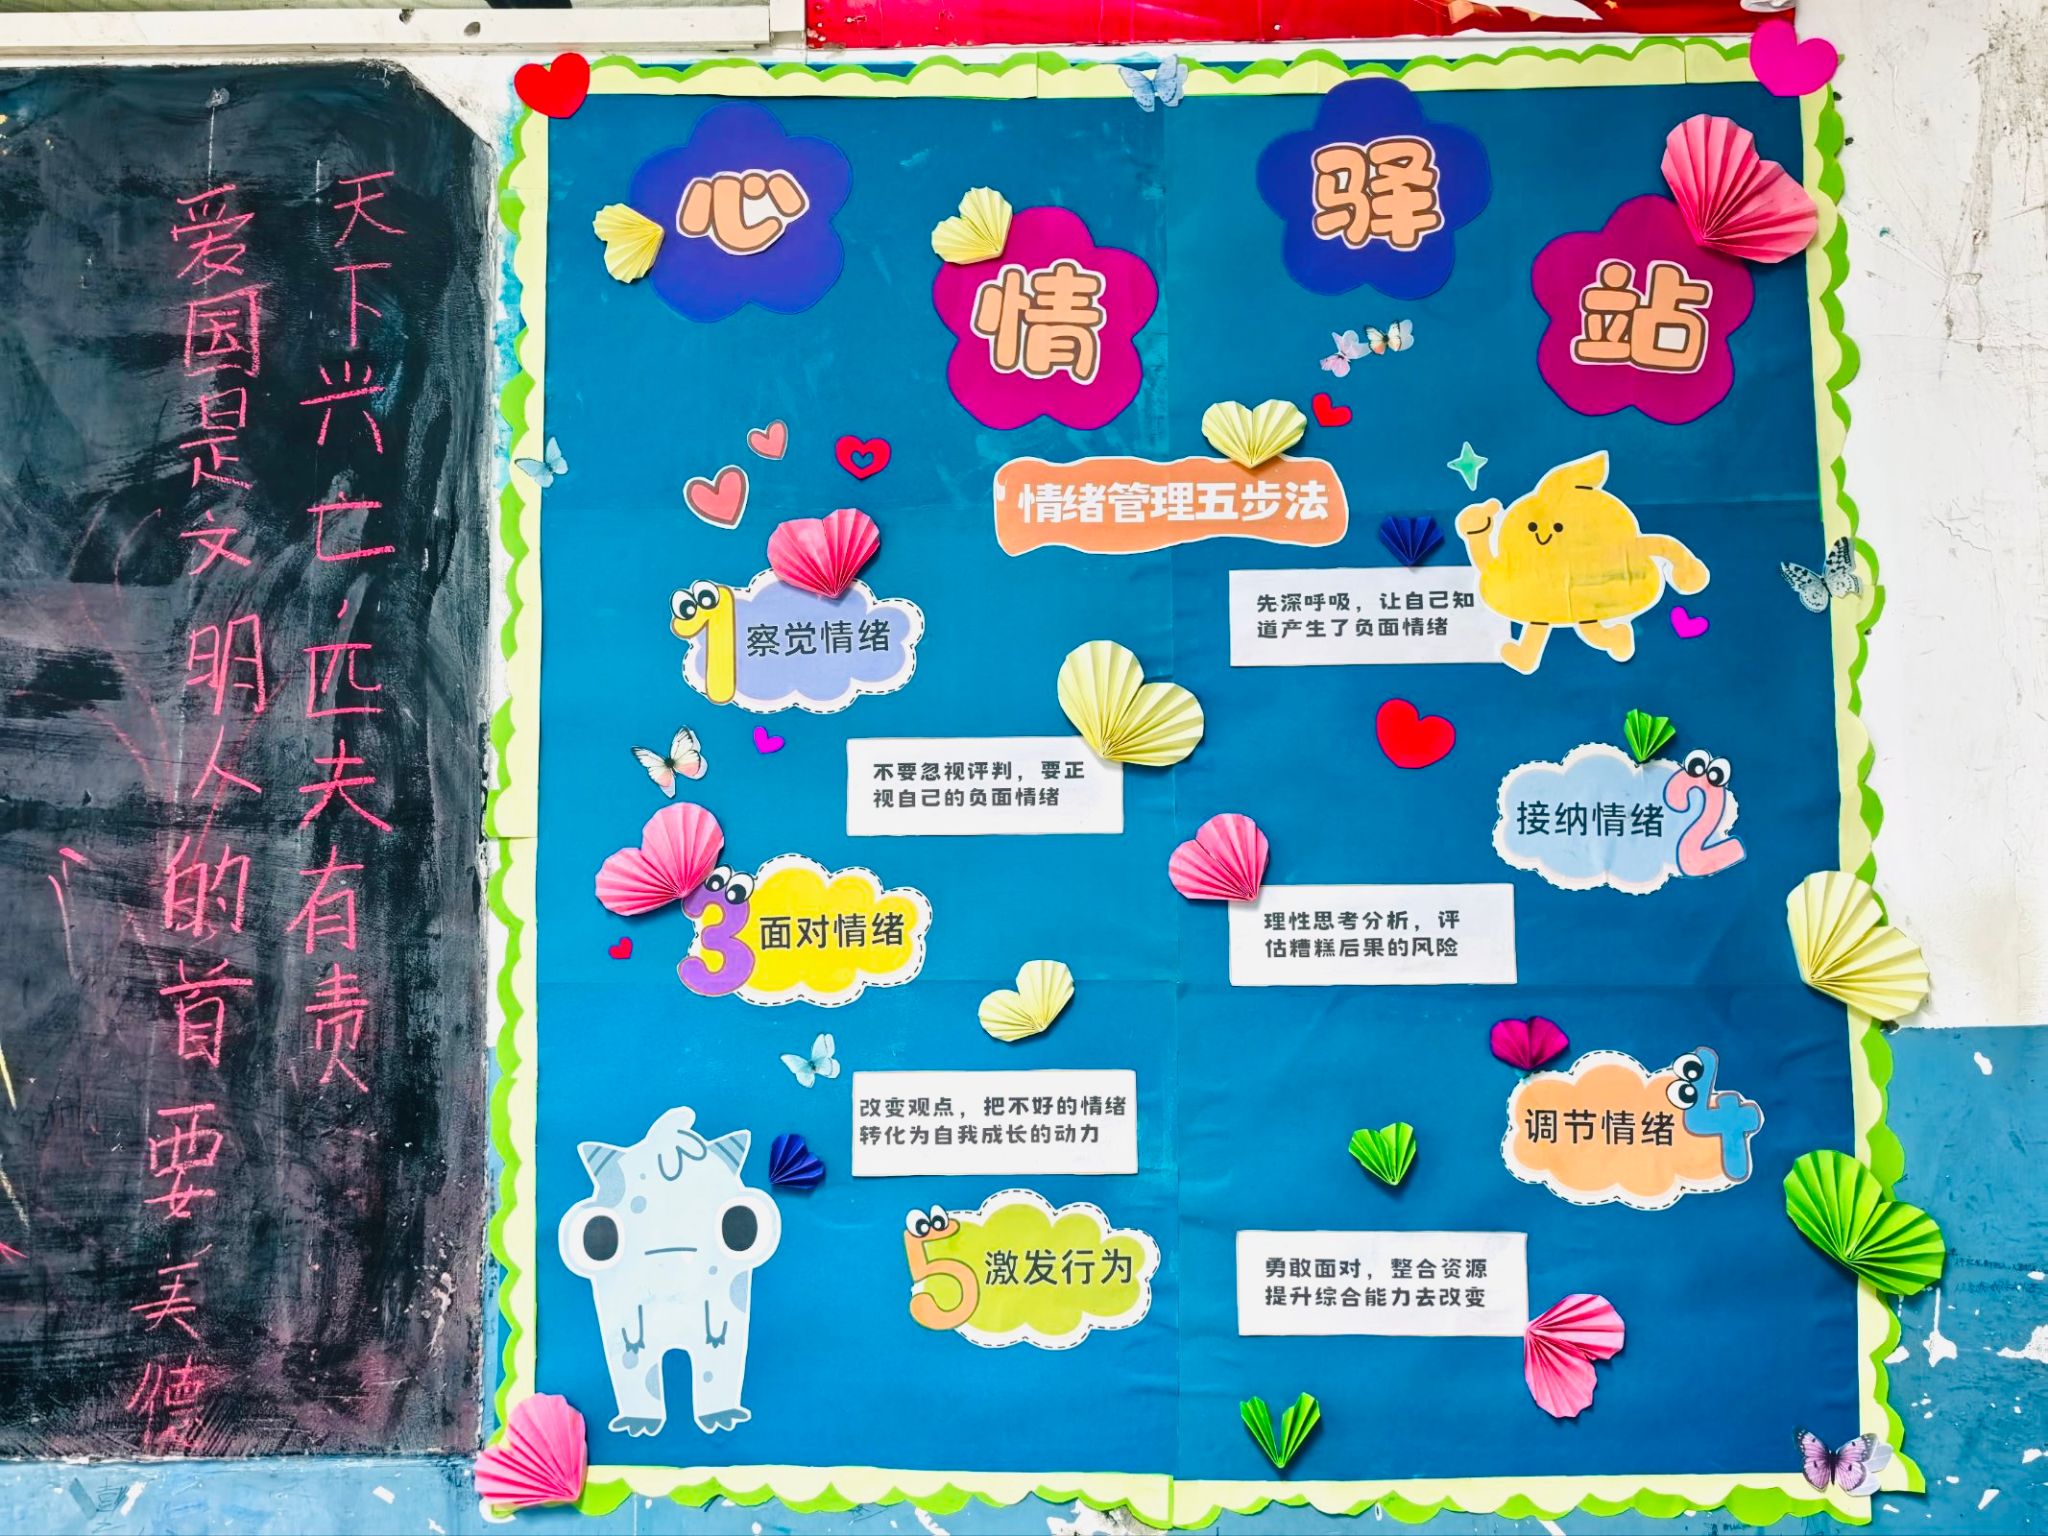 天下兴亡，匹夫有责
爱国是文明人的首要美德
心情驿站
情绪管理五步法
1 察觉情绪
先深呼吸，让自己知
道产生了负面情绪
不要忽视评判，要正
视自己的负面情绪
接纳情绪 2
3 面对情绪
理性思考分析，评
估糟糕后果的风险
改变观点，把不好的情绪
转化为自我成长的动力
调节情绪 4
5 激发行为
勇敢面对，整合资源
提升综合能力去改变